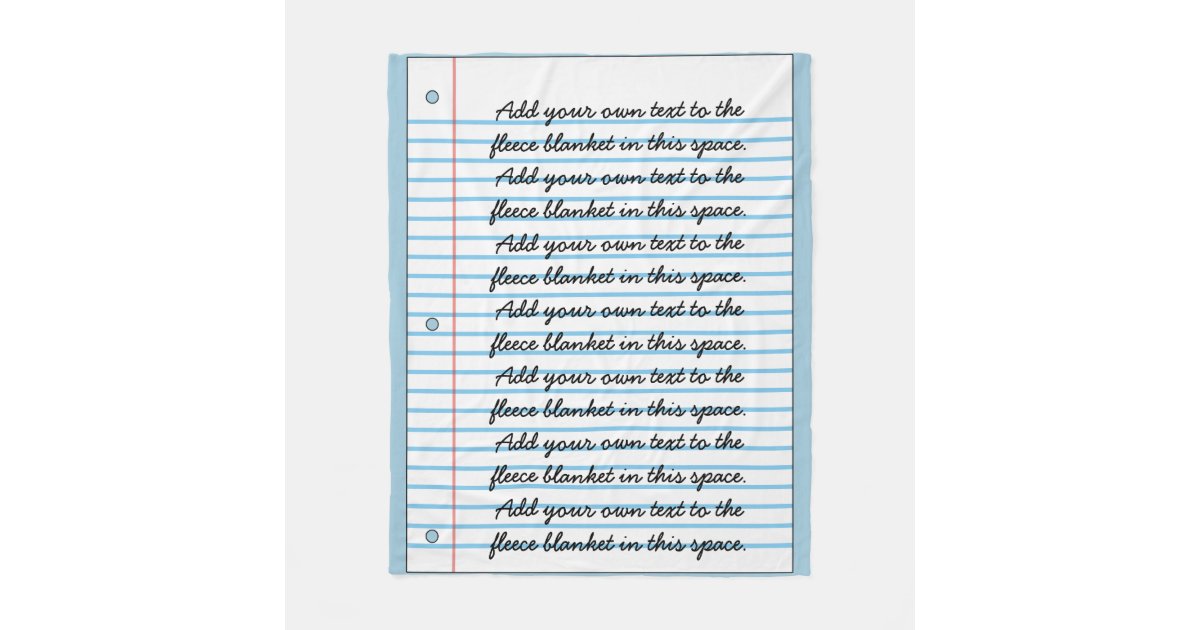 Add your own text to the
fleece blanket in this space.
Add your own text to the
fleece blanket in this space.
Add your own text to the
fleece blanket in this space.
Add your own text to the
fleece blanket in this space.
Add your own text to the
fleece blanket in this space.
Add your own text to the
fleece blanket in this space.
Add your own text to the
fleece blanket in this space.